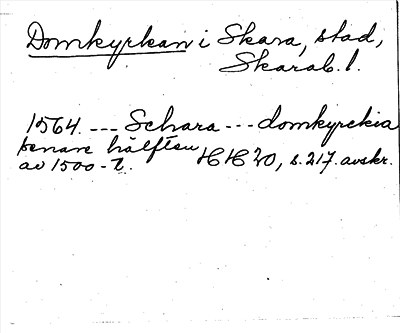 Domkyrkan i Skara, stad,
Skarab. l.
1564. --- Schara --- domkyrckia
senare hälften
av 1500-t. HH 20, s. 217. avskr.